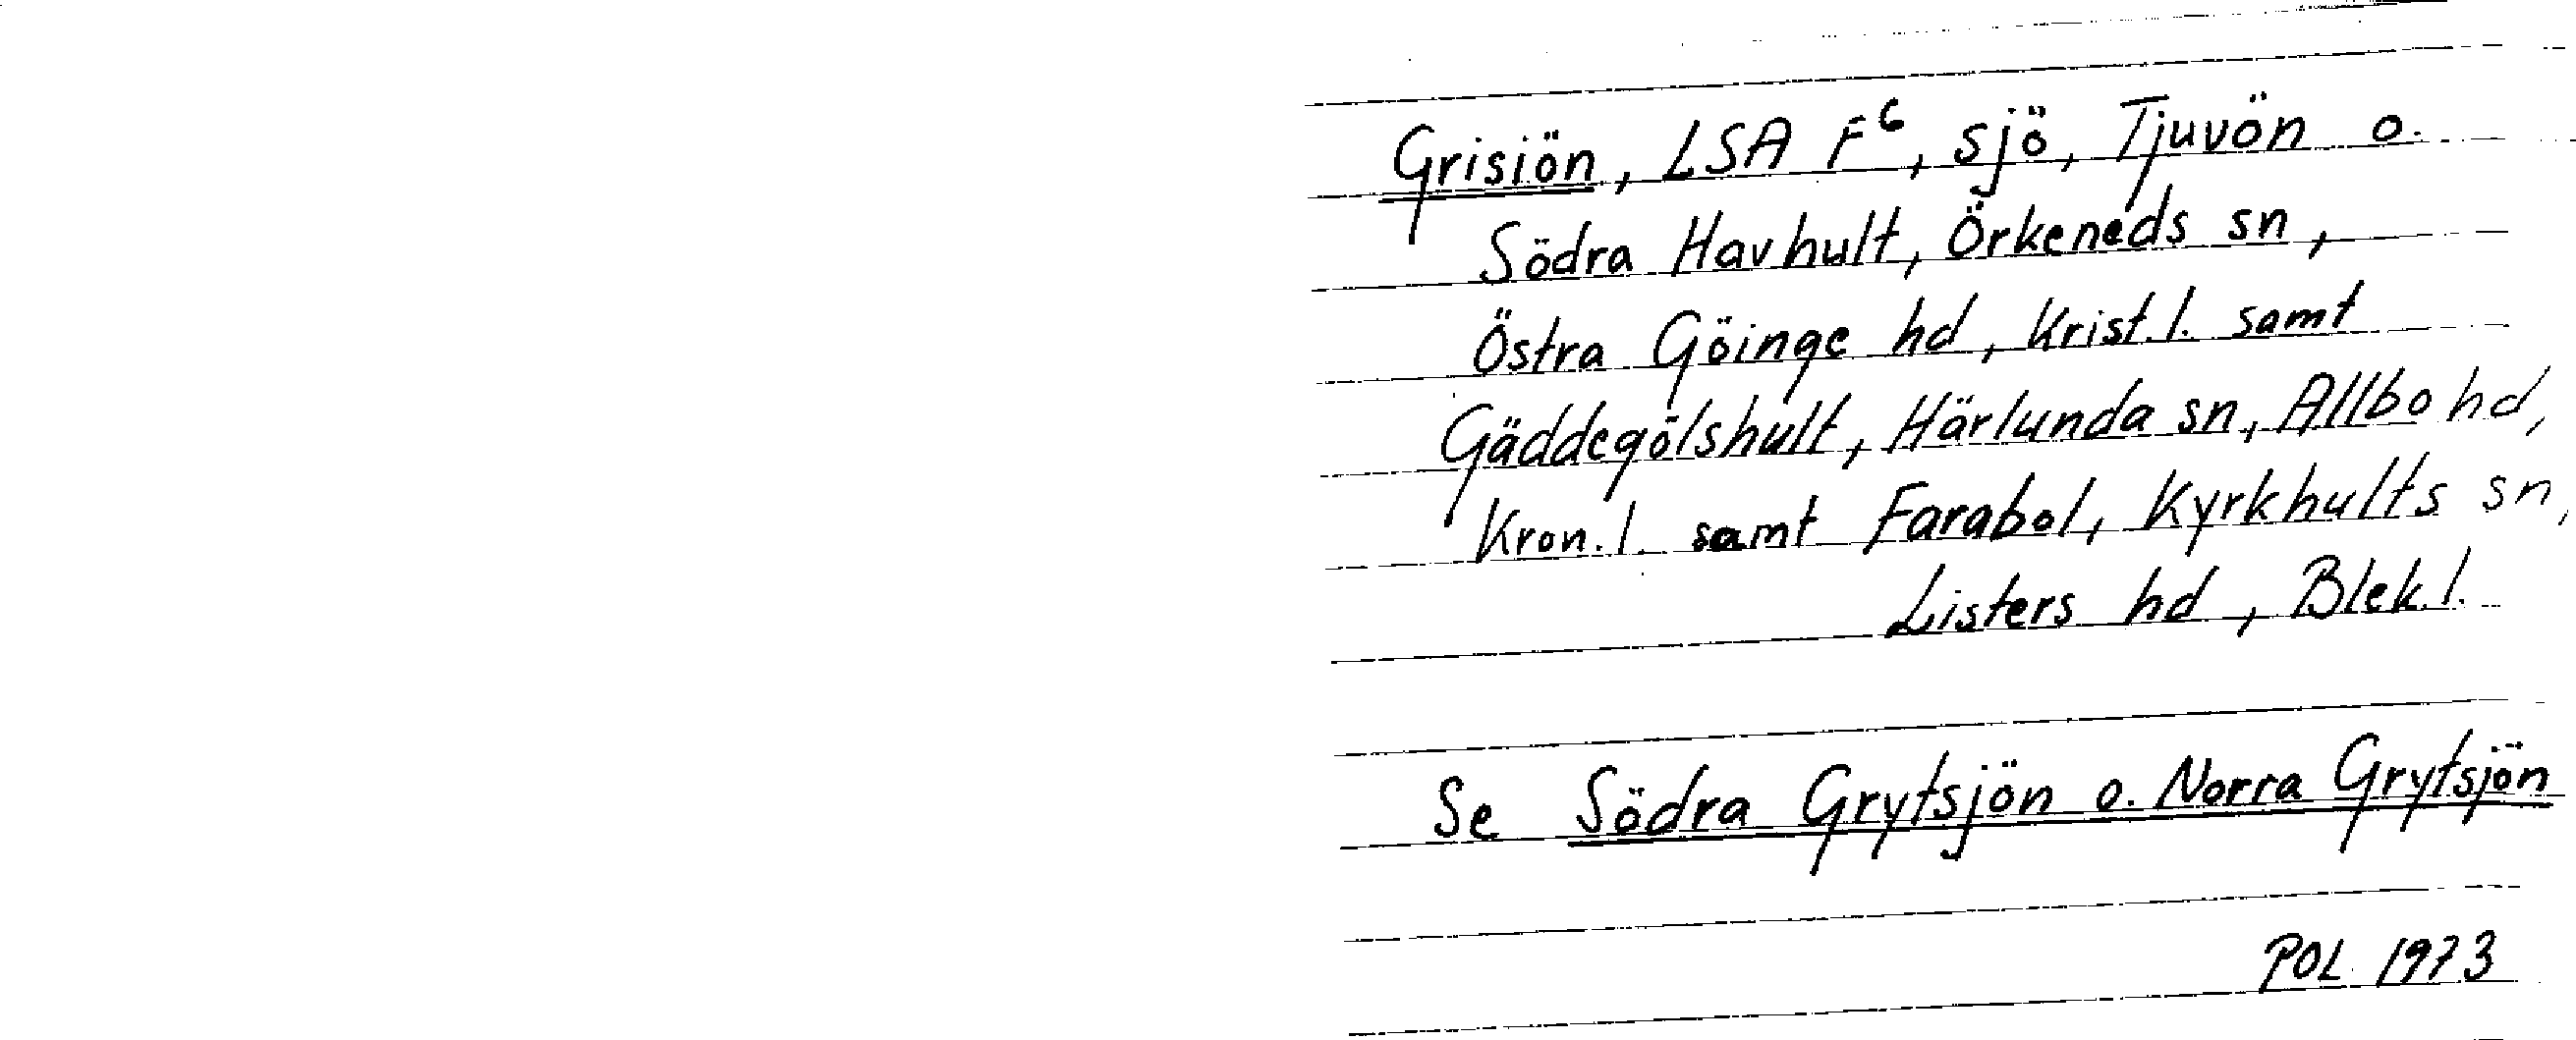 Grisiön, LSA F6, sjö, Tjuvön o.
Södra Havhult, Örkeneds sn,
Östra Göinge hd, Krist. l. samt
Gäddegölshult, Härlunda sn, Allbo hd,
Kron. l. samt Farabol, Kyrkhults sn,
Listers hd, Blek. l.
Se Södra Grytsjön o. Norra Grytsjön
POL 1973